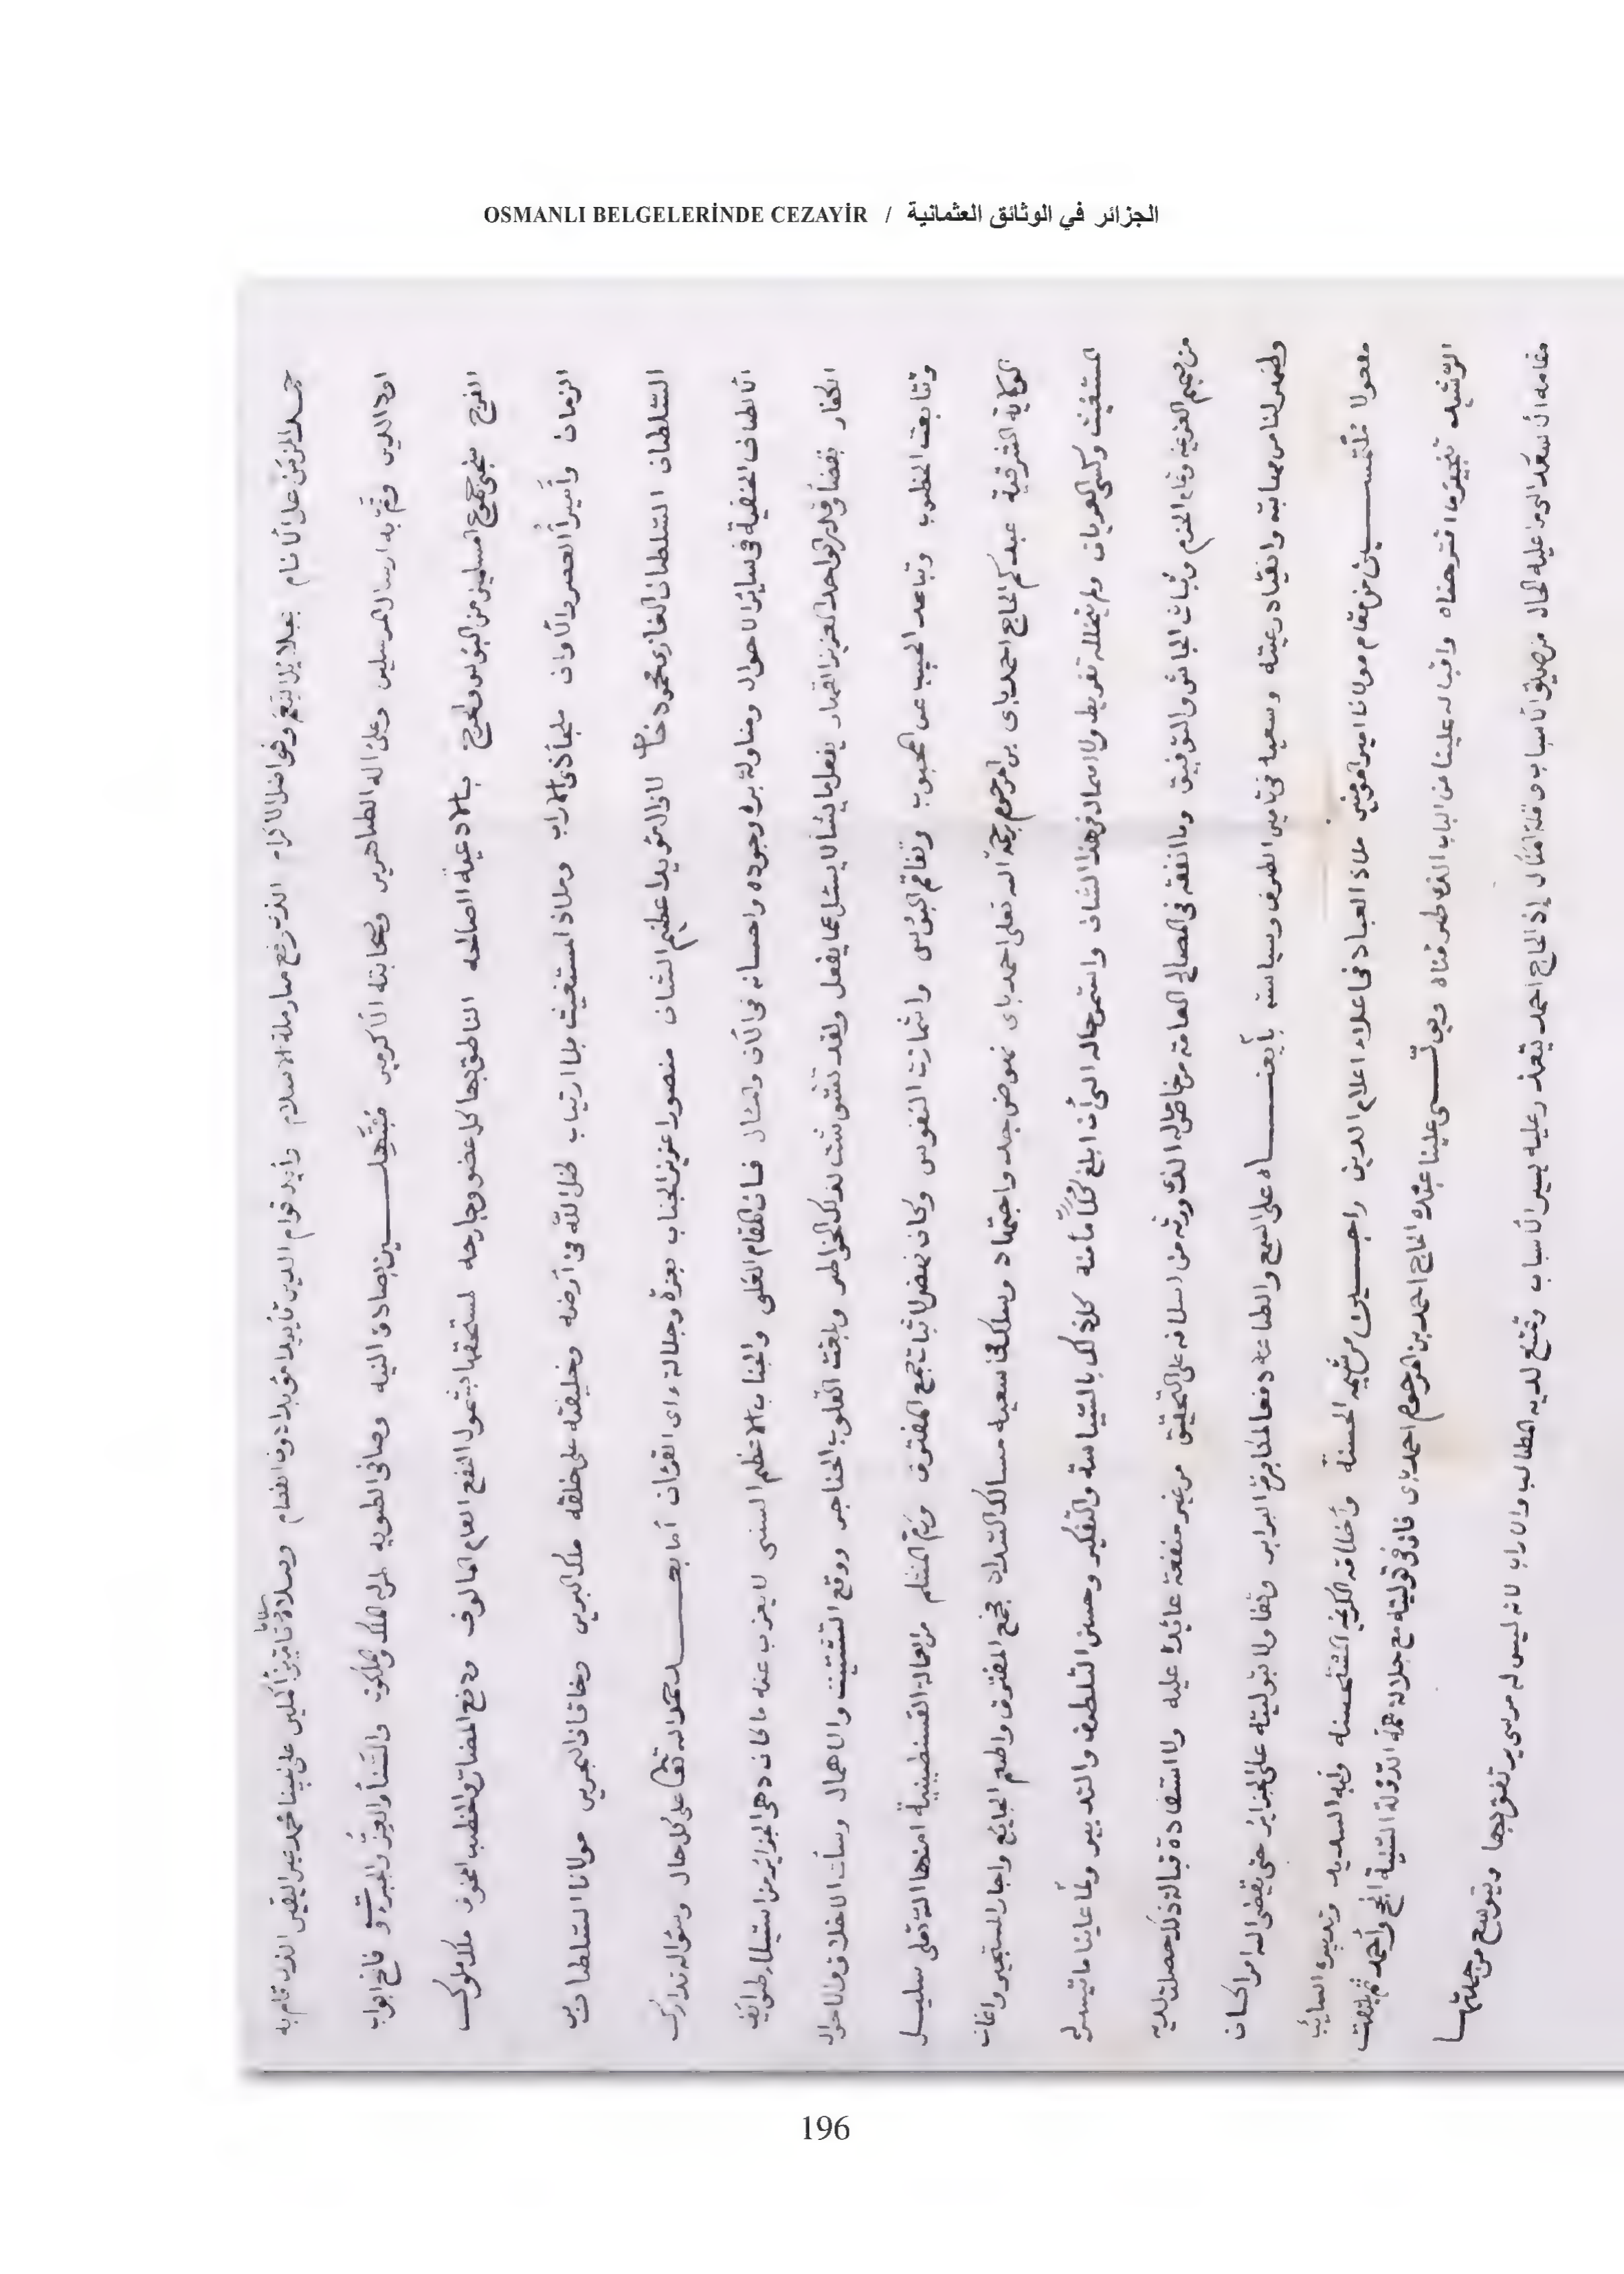 OSMANLI BELGELERİNDE CEZAYİR / الجزائر في الوثائق العثمانية
حمدا لمن من على الأنام بجلائل النعم وفواضل الاكرام الذي رفع منار ملة الاسلام وأيد قوام الدين تأييدا مؤبدا دون انفصام وصلاة وسلاما تامين أكملين على نبينا محمد عين اليقين الذي قام به
اود الدين وتم به ارسال المرسلين وعلى اله الطاهرين وصحابته الأكرمين مبتهلين بصادق النيه وصافي الطويه لمن له الملك والملكوت والثناء والعز والجبروت فاتح ابواب
الفرج منجي جموع المسلمين من البؤس والحرج بالادعية الصالحه الناطق بها كل عضو وجارحه لمستحقها بشمول النفع العام المالوف ودفع المضار والخطب المخوف ملك ملوك
الزمان وأمير أمراء العصر والأوان ملجأ ذوي الاراب وملاذ المستغيث بلا ارتياب ظل الله في أرضه وخليفته على خلقه ملك البرين وخاقان البحرين مولانا السلطان بن
السلطان السلطان الغازي محمود خان لازال مؤيدا عظيم الشان منصورا عزيز الجناب بعزة وجلالة ءاي القرءان أما بعد حمد الله تعالى على كل حال وسؤاله تدارك
الألطاف الخفية في سائر الاحوال ومناولة بره وجوده واحسانه في الآن والمئال فان المقام العلى والجناب الاعظم السني لا يعزب عنه ما كان دهى الجزائر من استيلاء طوائف
الكفار بقضاء وقدر الواحد العزيز القهار يفعل ما يشاء لا يسئل عما يفعل ولقد تشوشت لذلك الخواطر وبلغت القلوب الحناجر ووقع التشتيت والاهمال وساءت الاخلاق والاحوال
وتتابعت الخطوب وتباعد الحبيب عن المحبوب وتفاقم البؤس واشمازت النفوس وكان نهض لاثبات جمع المفترق ورم المنثلم من عمالة القسنطينية امنها الله تعلى سليل
الوكاية الشرقية عبدكم الحاج احمد باي بن المرحوم برحمة الله تعلى احمد باي نهوض جد واجتهاد وسلك في سعيه مسالك السداد فجمع المفترق واطعم الجائع واجار المستجير واغاث
المستغيث وكسى العريان ولم يتخلله تفريط ولا اهمال في هذا الشان واستمر حاله الى أن ابلغ كلا مأمنه كل ذلك بالسياسة والتفكير وحسن التلطف والتدبير ولما عاينا ما تيسر له
من صميم العزيمة وقيام الحزم وثبات الجاش والتوفيق وما انفقه في المصالح العامة من خاص ماله الذي ورثه من اسلافه على التحقيق من غير منفعة عائدة عليه ولا استفادة قبالة ذلك حصلت لديه
وظهر لنا من مهابته وانقياد رعيته وسعيه في تامين الطرق وسياسته بايعناه على السمع والطاعة دفعا لمكابرة البرابر وتفاءلا بتوليته على الجزائر حتى يقضي الله امرا كان
مفعولا ملتمسين من مقام مولانا امير المومنين ملاذ العباد في اعلاء اعلام الدين راجين من شيمه الحسنة وأخلاقه الكريمة المستحسنه ورأيه السديد وتدبيره الصائب
الرشيد تنجيز ما اقترحناه واقباله علينا من الباب الذي طرقناه ويولي علينا عبده الحاج احمد بن المرحوم احمد باي فان في توليته مع جلالة همة الدولة السنية انجح وأحمد ثم نلتمس
مقامه أن نسعد الى ما عليه الحال من ضيق الأسباب وقلة المنال إذ الحاج احمد يتعذر عليه يسير الأسباب وتمتنع لديه المطالب والاراب لانه ليس له مرسى يرتفق بها ويتوسع من جهتها
196